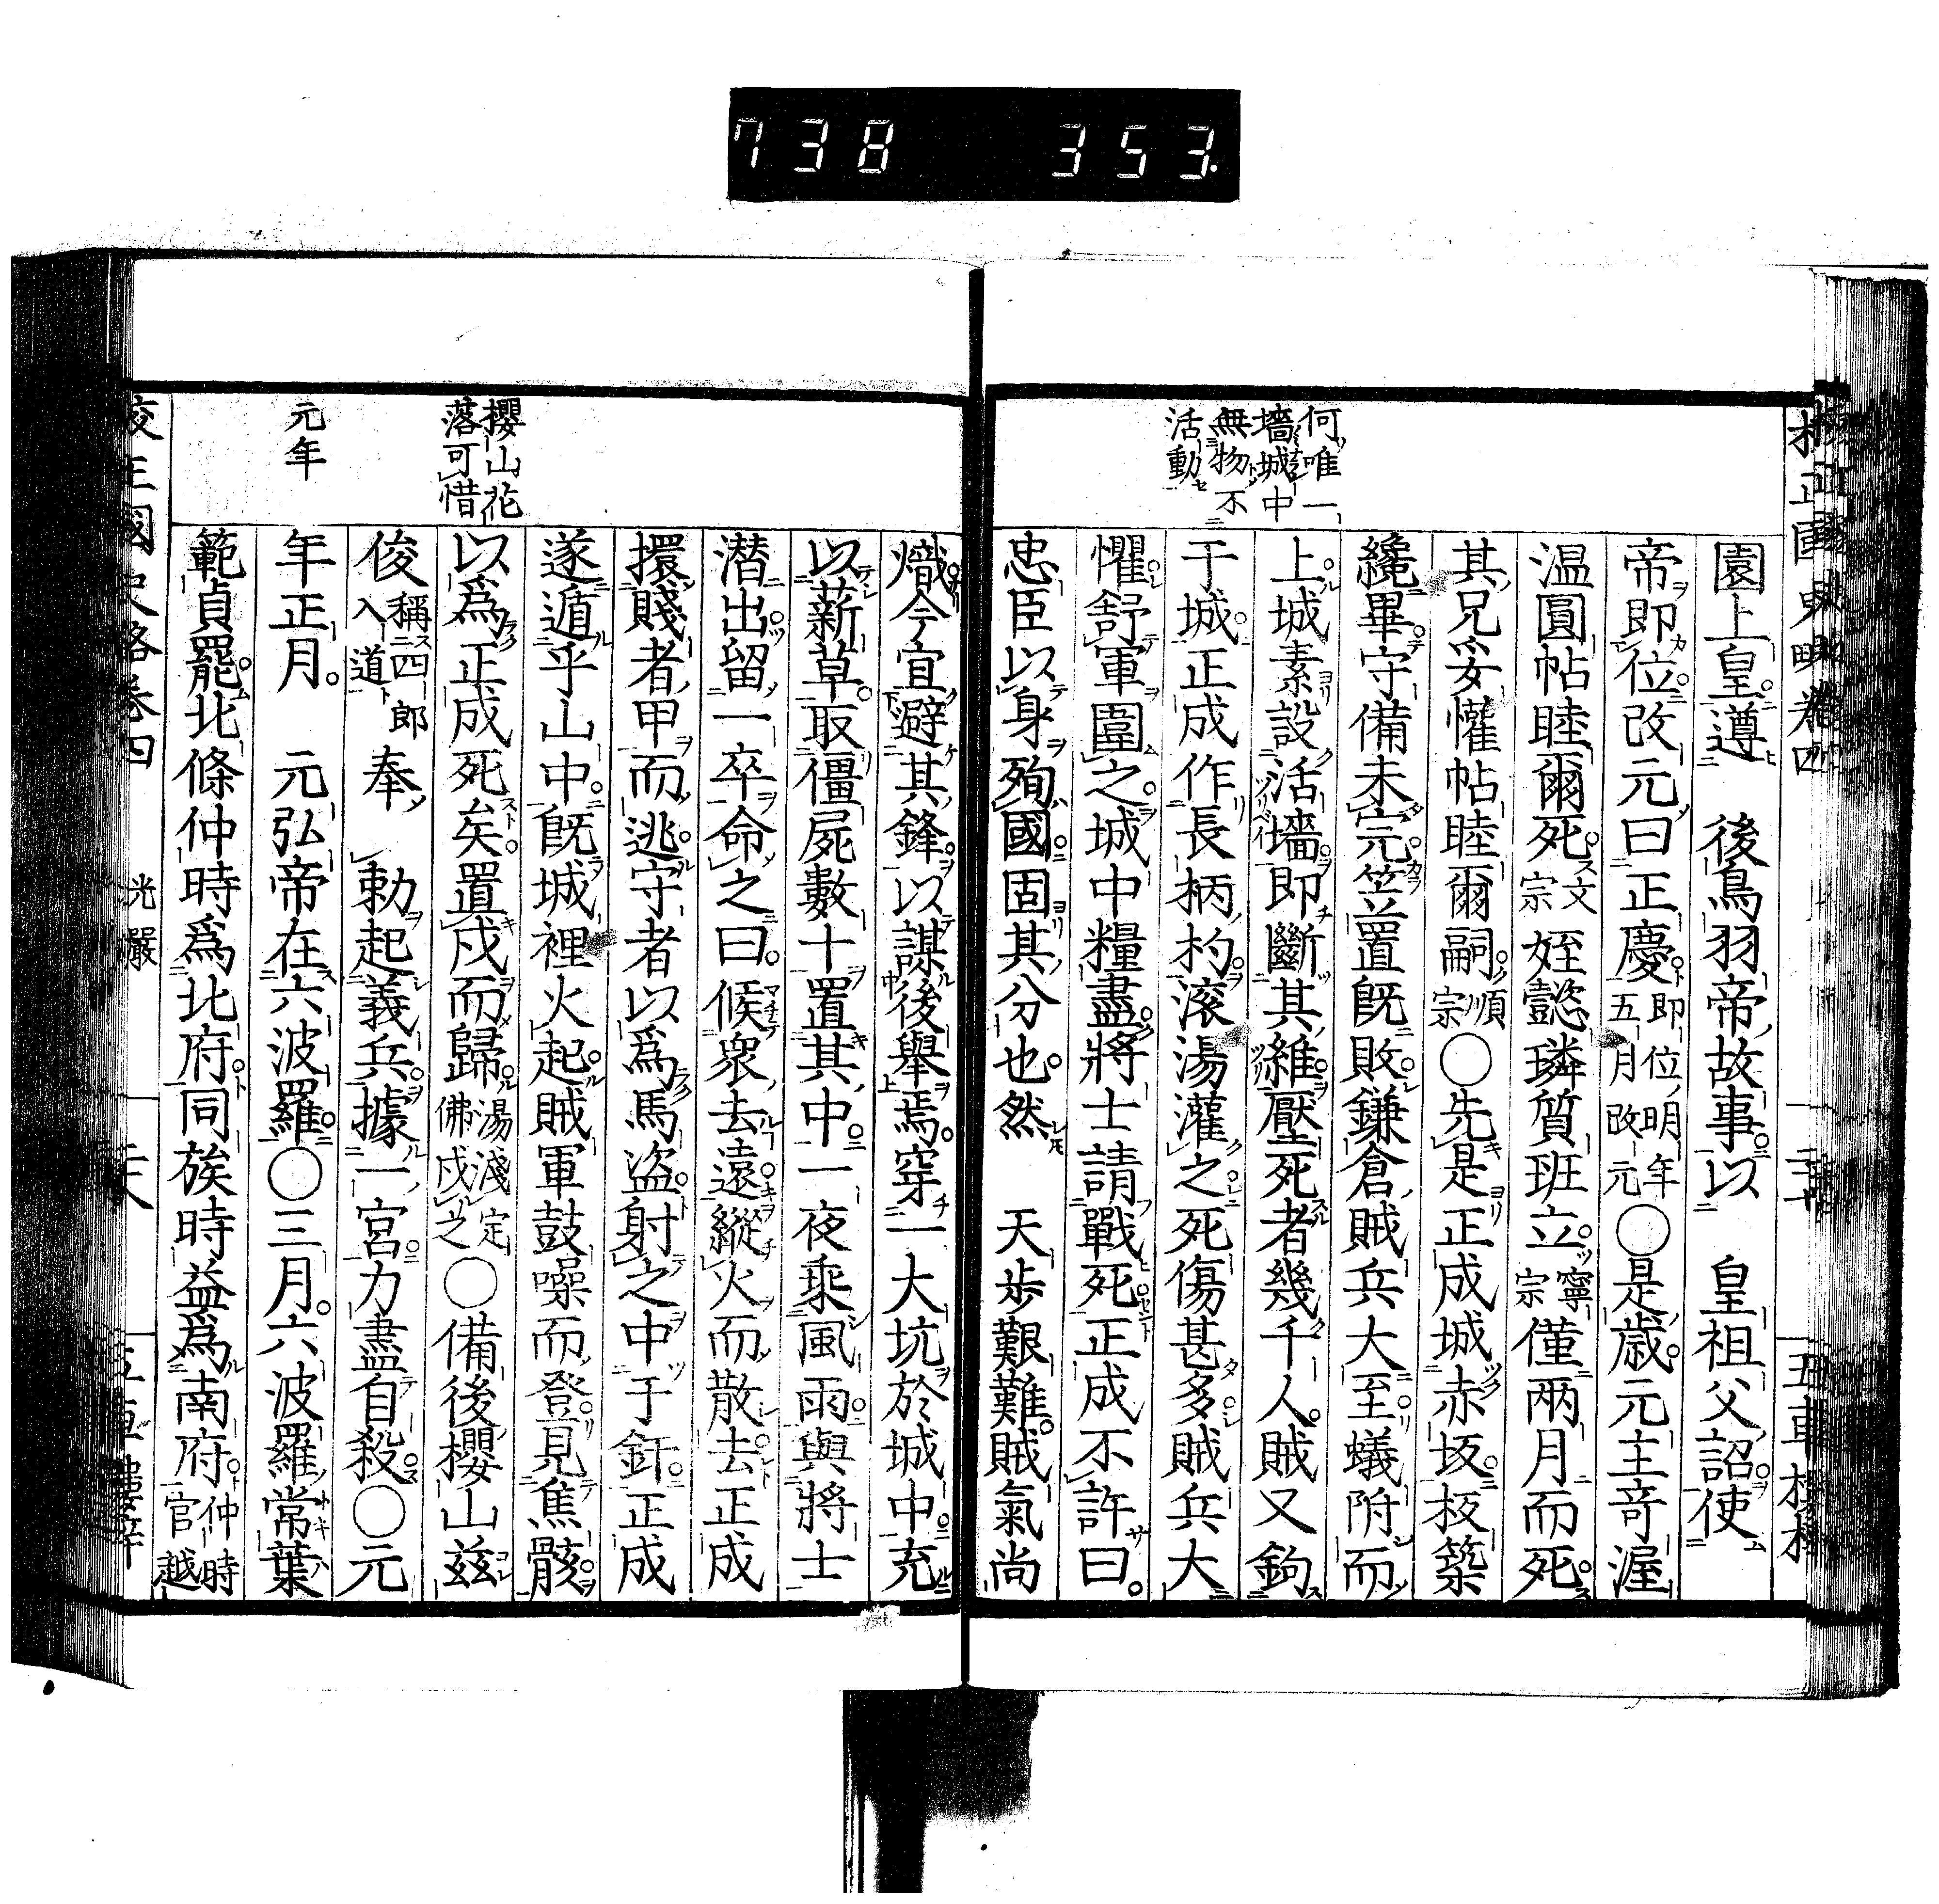 738 353
何唯一
墻城中
無物不
活動
園上皇遵 後鳥羽帝故事以 皇祖父詔使
帝即位改元曰正慶即位明年五月改元○是歳元主奇渥
温圓帖睦爾死文宗姪懿璘質班立寧宗僅兩月而死
其兄妥懽帖睦爾嗣順宗○先是正成城赤坂板築
纔畢守備未完笠置既敗鎌倉賊兵大至蟻附而
上城素設活墻即斷其維壓死者幾千人賊又鉤
于城正成作長柄杓滚湯灌之死傷甚多賊兵大
懼舒軍圍之城中糧盡將士請戰死正成不許曰
忠臣以身殉國固其分也然 天歩艱難賊氣尚
熾今宜避其鋒以謀後舉焉穿一大坑於城中充
以薪草取僵屍數十置其中一夜乘風雨與將士
潜出留一卒命之曰候衆去遠縱火而散去正成
擐賤者甲而逃守者以爲馬盗射之中于釬正成
遂遁乎山中既城裡火起賊軍鼓噪而登見焦骸
以爲正成死矣置戍而歸湯淺定佛戍之○備後櫻山茲
俊稱四郎入道奉 勅起義兵據一宮力盡自殺○元
年正月 元弘帝在六波羅○三月六波羅常葉
範貞罷北條仲時爲北府同族時益爲南府仲時越官
櫻山花
落可惜
元年
校正國史略卷四 光嚴